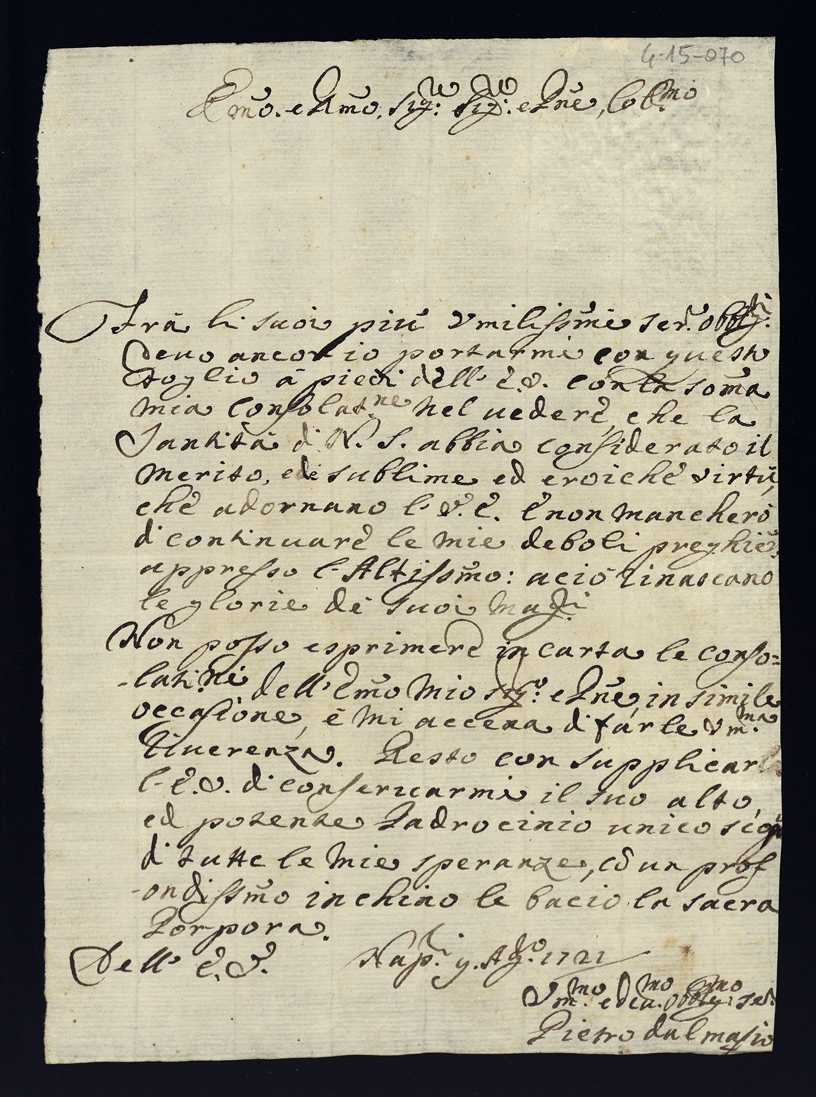 4-15-070
Emo. e Rmo. Sig:re Sig:re e Pne, Col:mo
Frà li suoi più Vmilissmi ser. obblg:ti
deuo ancor io portarmi con questo
foglio à piedi dell' E.V. con la soma
mia consolatne nel uedere, che la
Santità di N. S. abbia considerato il
merito, e le sublime ed eroiche virtù,
che adornano l' V.E. E non mancherò
di continuare le mie deboli preghiere
appresso l' Altissmo: aciò rinascano
le glorie de suoi
Non posso esprimere in carta le conso=
-latini dell' Emo Mio Sig:o e Pne, in simile
occasione, è mi accena di farle Vm:ma
riuerenza. Resto con supplicar
l' E.V. di conseruarmi il suo alto,
ed potente Padrocinio unico scopo
di tutte le mie speranze, cō un prof
-ondissmo inchino le bacio la sacra
Porpora.
Dell' E.V. Nap:li 9. Ag:o 1721
Vm:mo e deu:mo obblg:mo ser.
Pietro dalmasio